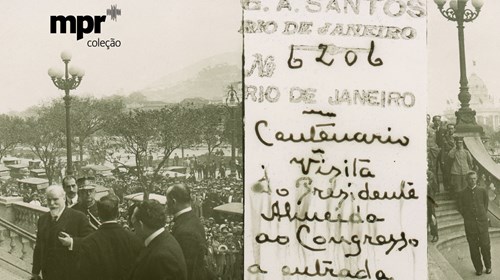 mpr
coleção
G. A. SANTOS
RIO DE JANEIRO
Nº 6206
RIO DE JANEIRO
Centenario
Visita
do Presidente
Almeida
ao Congresso
a entrada